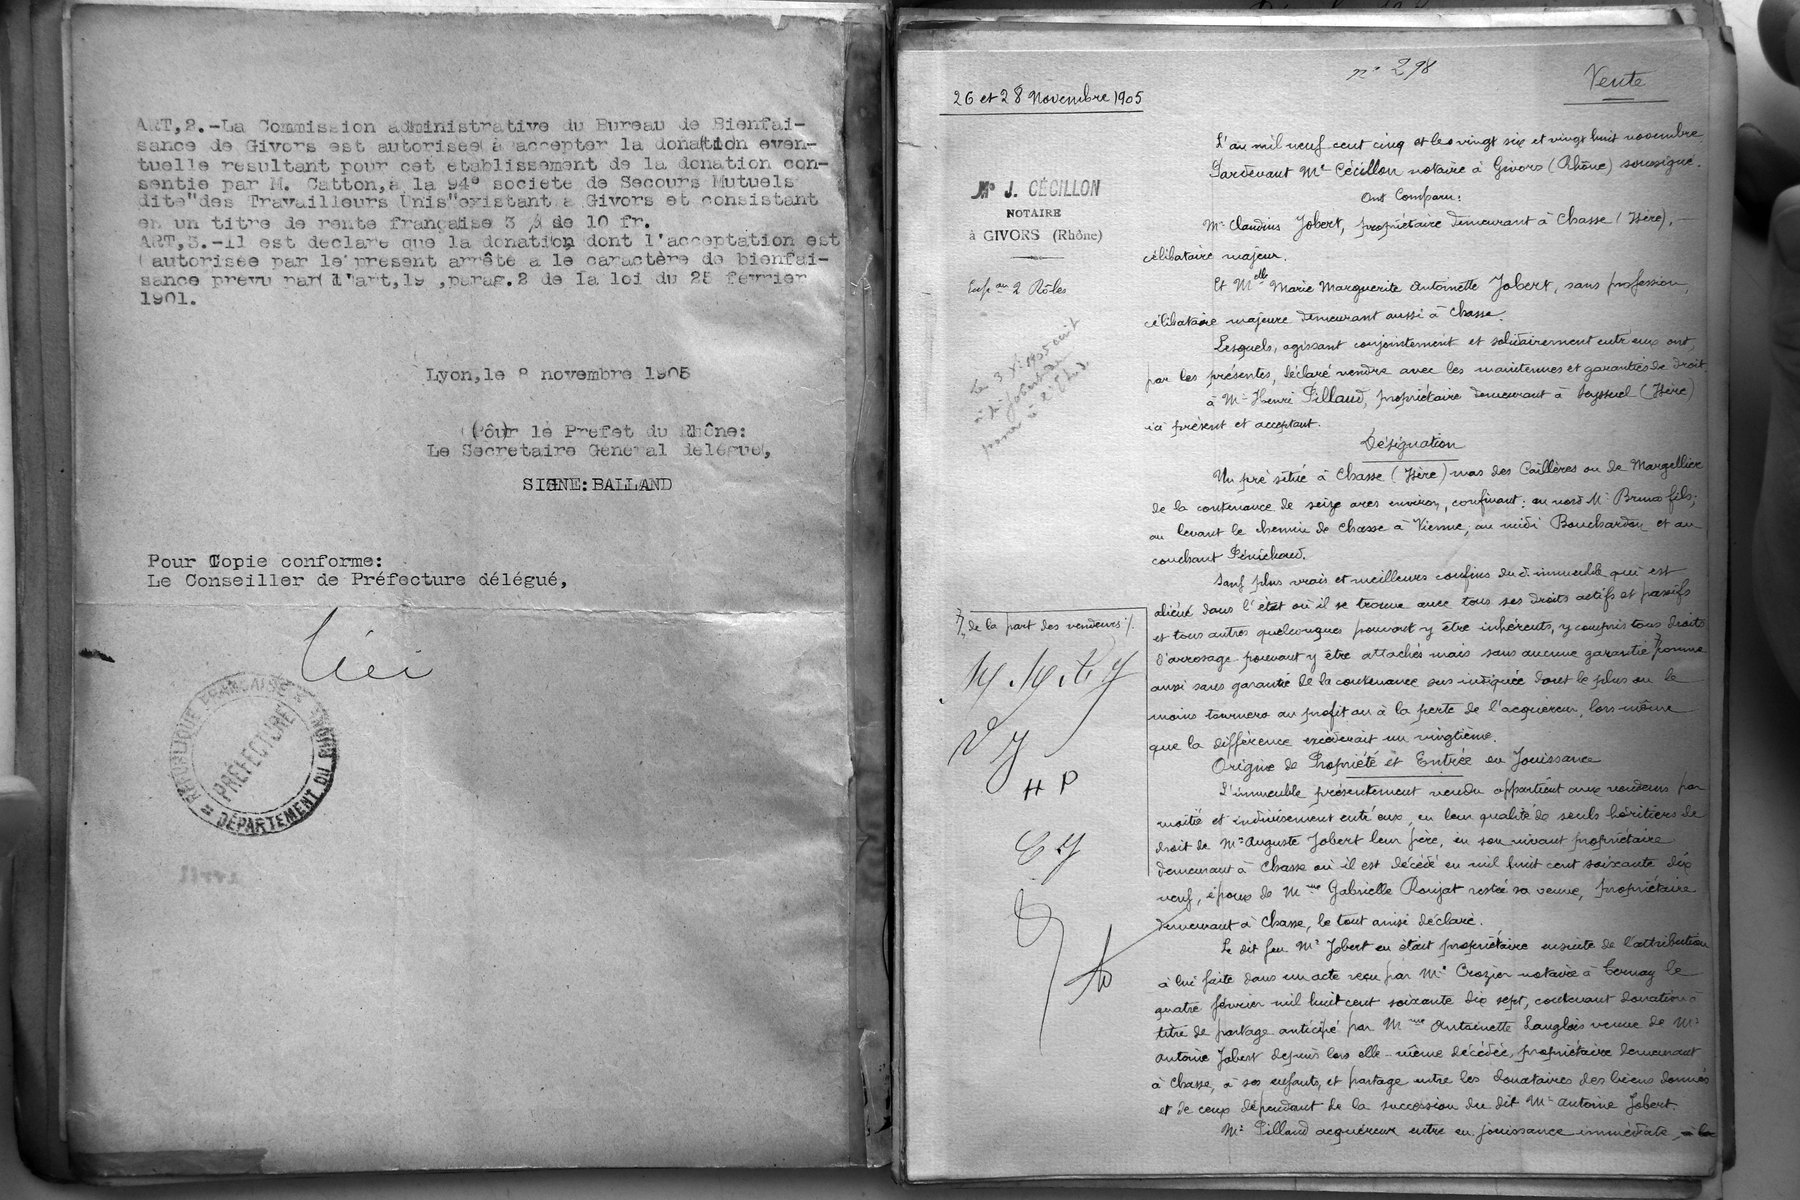 ART,2.-La Commission administrative du Bureau de Bienfai-
sance de Givors est autorisee à accepter la donation even-
tuelle resultant pour cet etablissement de la donation con-
sentie par M. Catton,à la 94e societe de Secours Mutuels
dite"des Travailleurs Unis"existant a Givors et consistant
en un titre de rente française 3 % de 10 fr.
ART,3.-Il est declare que la donation dont l'acceptation est
autorisee par le present arrêté a le caractère de bienfai-
sance prevu par l'art,19 ,parag.2 de la loi du 25 fevrier
1901.
Lyon,le 8 novembre 1905
Pour le Prefet du Rhône:
Le Secretaire General délégué,
SIGNE:BALLAND
Pour Copie conforme:
Le Conseiller de Préfecture délégué,
REPUBLIQUE FRANÇAISE
PRÉFECTURE
DÉPARTEMENT DU RHÔNE
n° 298
Vente
26 et 28 Novembre 1905
Me J. CÉCILLON
NOTAIRE
à GIVORS (Rhône)
Exp on 2 Rôles
L'an mil neuf cent cinq et les vingt six et vingt huit novembre
Pardevant Me Cécillon notaire à Givors (Rhône) soussigné.
Ont Comparu:
Mr Claudius Jobert, propriétaire demeurant à Chasse (Isère),
célibataire majeur.
Et Melle Marie Marguerite Antoinette Jobert, sans profession,
célibataire majeure demeurant aussi à Chasse.
Lesquels, agissant conjointement et solidairement entr'eux ont
par les présentes, déclaré vendre avec les maintenues et garanties de droit
à Mr Henri Pilland, propriétaire demeurant à Seyssuel (Isère)
ici présent et acceptant.
Désignation
Un pré situé à Chasse (Isère) mas des Caillères ou de Margellier
de la contenance de seize ares environ, confinant: au nord Mr Bruno fils;
au levant le chemin de Chasse à Vienne, au midi Bouchardon et au
couchant Pénichaud.
Sauf plus vrais et meilleurs confins du d. immeuble qui est
aliéné dans l'état où il se trouve avec tous ses droits actifs et passifs
et tous autres quelconques pouvant y être inhérents, y compris tous droits
d'arrosage pouvant y être attachés mais sans aucune garantie comme
aussi sans garantie de la contenance sus-indiquée dont le plus ou le
moins tournera au profit ou à la perte de l'acquéreur, lors même
que la différence excéderait un vingtième.
de la part des vendeurs
H P
Origine de Propriété et Entrée en Jouissance
L'immeuble présentement vendu appartient aux vendeurs par
moitié et indivisément entr'eux, en leur qualité de seuls héritiers de
droit de Mr Auguste Jobert leur père, en son vivant propriétaire
demeurant à Chasse où il est décédé en mil huit cent soixante dix
neuf, époux de Mme Gabrielle Roujat restée sa veuve, propriétaire
demeurant à Chasse, le tout ainsi déclaré.
Le dit feu Mr Jobert en était propriétaire ensuite de l'attribution
à lui faite dans un acte reçu par Me Crozier notaire à Ternay le
quatre février mil huit cent soixante dix sept, contenant donation à
titre de partage anticipé par Mme Antoinette Langlois veuve de Mr
Antoine Jobert depuis lors elle-même décédée, propriétaire demeurant
à Chasse, à ses enfants, et partage entre les donataires des biens donnés
et de ceux dépendant de la succession du dit Mr Antoine Jobert.
Mr Pilland acquéreur entre en jouissance immédiate,